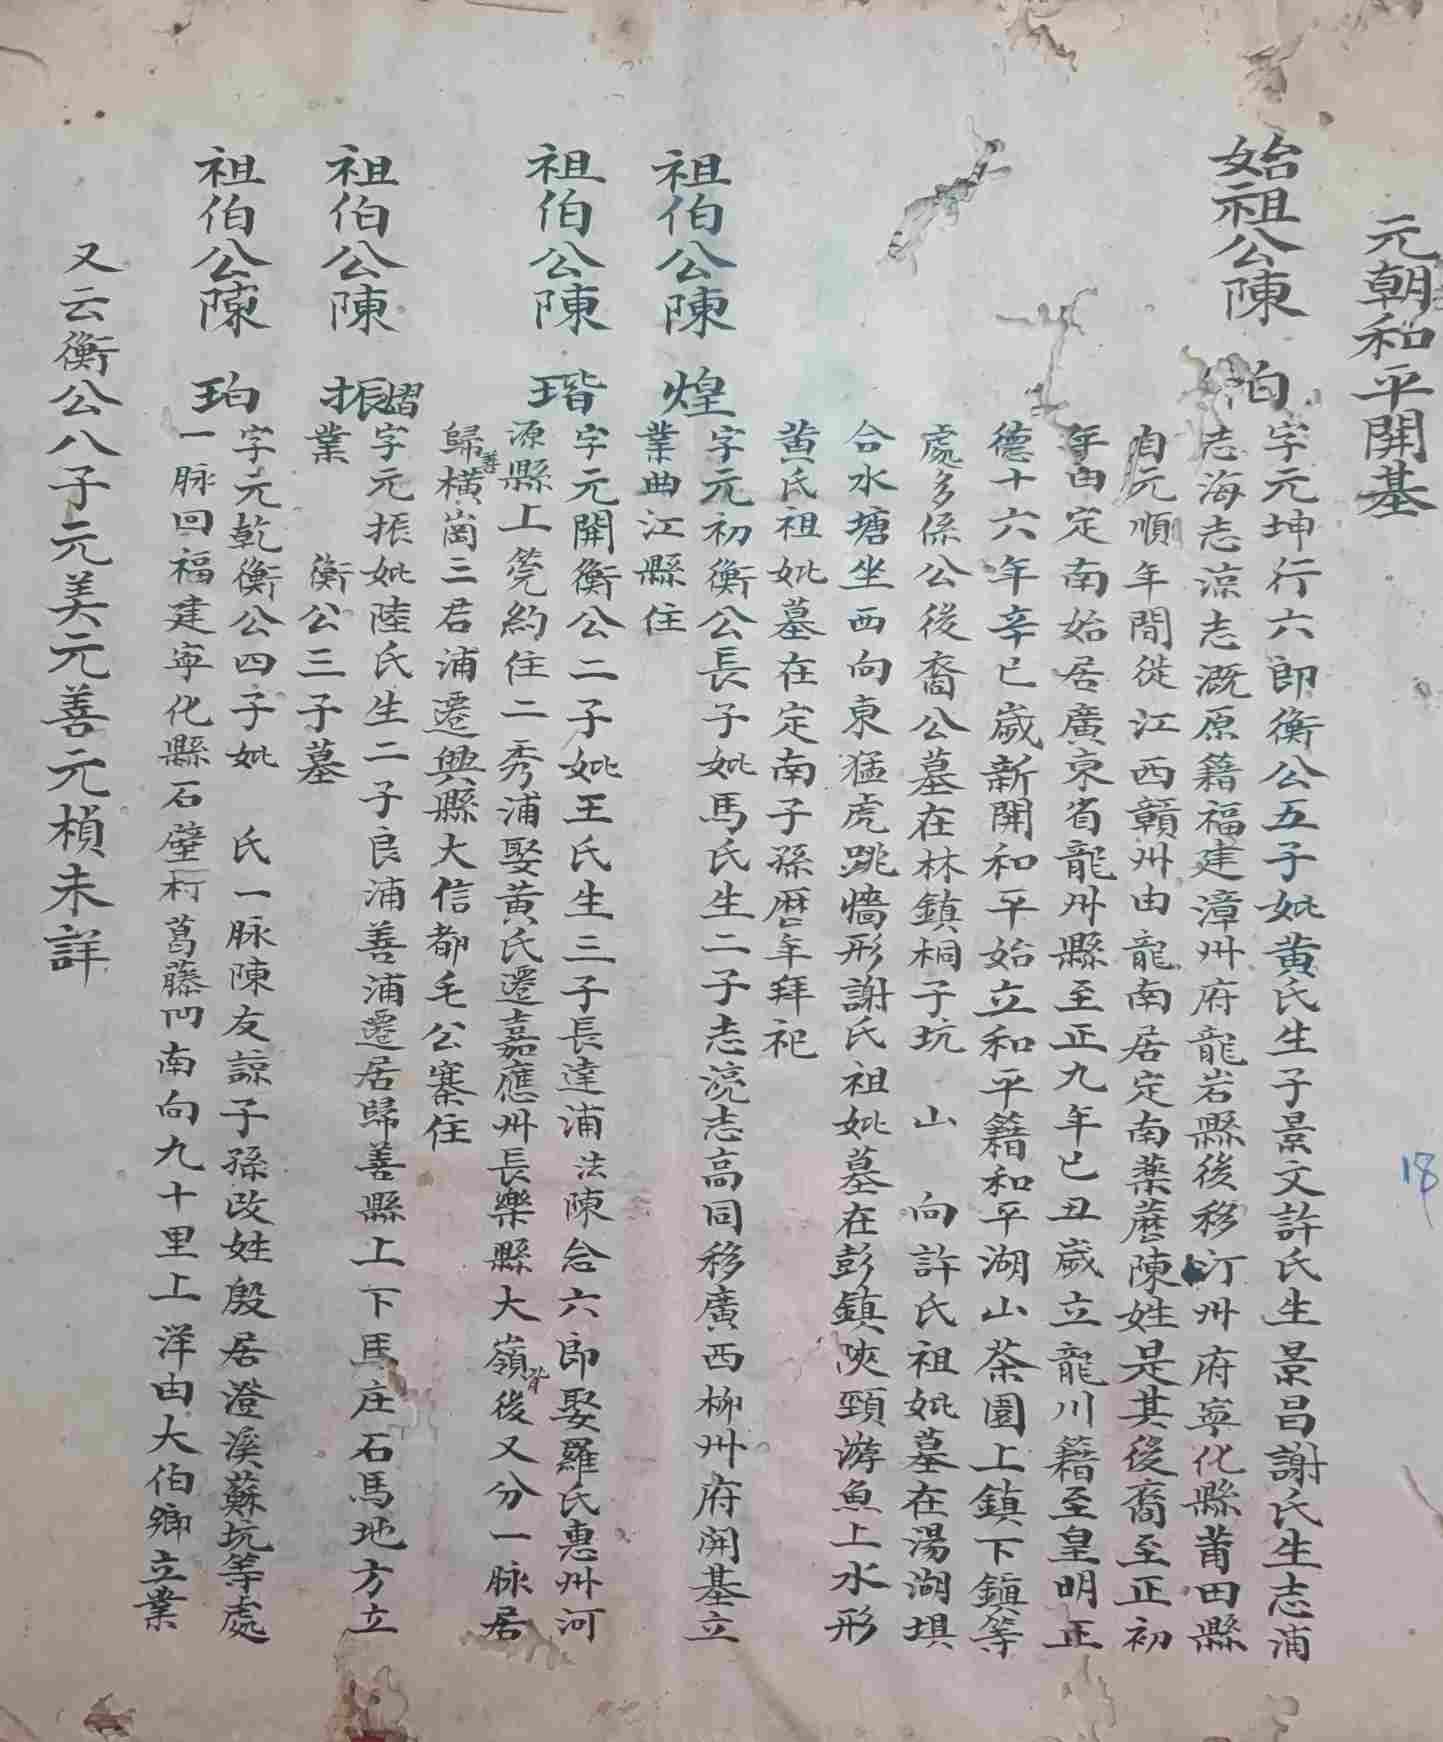 元朝和平開基
始祖公陳 伯
字元坤行六郎衡公五子妣黃氏生子景文許氏生景昌謝氏生志浦
志海志涼志溉原籍福建漳州府龍岩縣後移汀州府寧化縣莆田縣
自元順年間從江西贛州由龍南居定南藥蔴陳姓是其後裔至正初
年由定南始居廣東省龍州縣至正九年己丑歲立龍川籍至皇明正
德十六年辛巳歲新開和平始立和平籍和平湖山茶園上鎮下鎮等
處多係公後裔公墓在林鎮桐子坑 山 向許氏祖妣墓在湯湖塤
合水塘坐西向東猛虎跳墻形謝氏祖妣墓在彭鎮陝頸游魚上水形
黃氏祖妣墓在定南子孫歷年拜祀
祖伯公陳 煌
字元初衡公長子妣馬氏生二子志浣志高同移廣西柳州府開基立
業曲江縣住
祖伯公陳 瑎
字元開衡公二子妣王氏生三子長達浦法陳合六郎娶羅氏惠州河
源縣上莞約住二秀浦娶黃氏遷嘉應州長樂縣大嶺背後又分一脉居
歸善橫崗三君浦遷興縣大信都毛公寨住
祖伯公陳 振熠
字元振妣陸氏生二子良浦善浦遷居歸善縣上下馬庄石馬地方立
業 衡公三子墓
祖伯公陳 珀
字元乾衡公四子妣 氏一脉陳友諒子孫改姓殷居澄溪蘇坑等處
一脉回福建寧化縣石壁村葛藤凹南向九十里上洋由大伯鄉立業
又云衡公八子元美元善元楨未詳
18